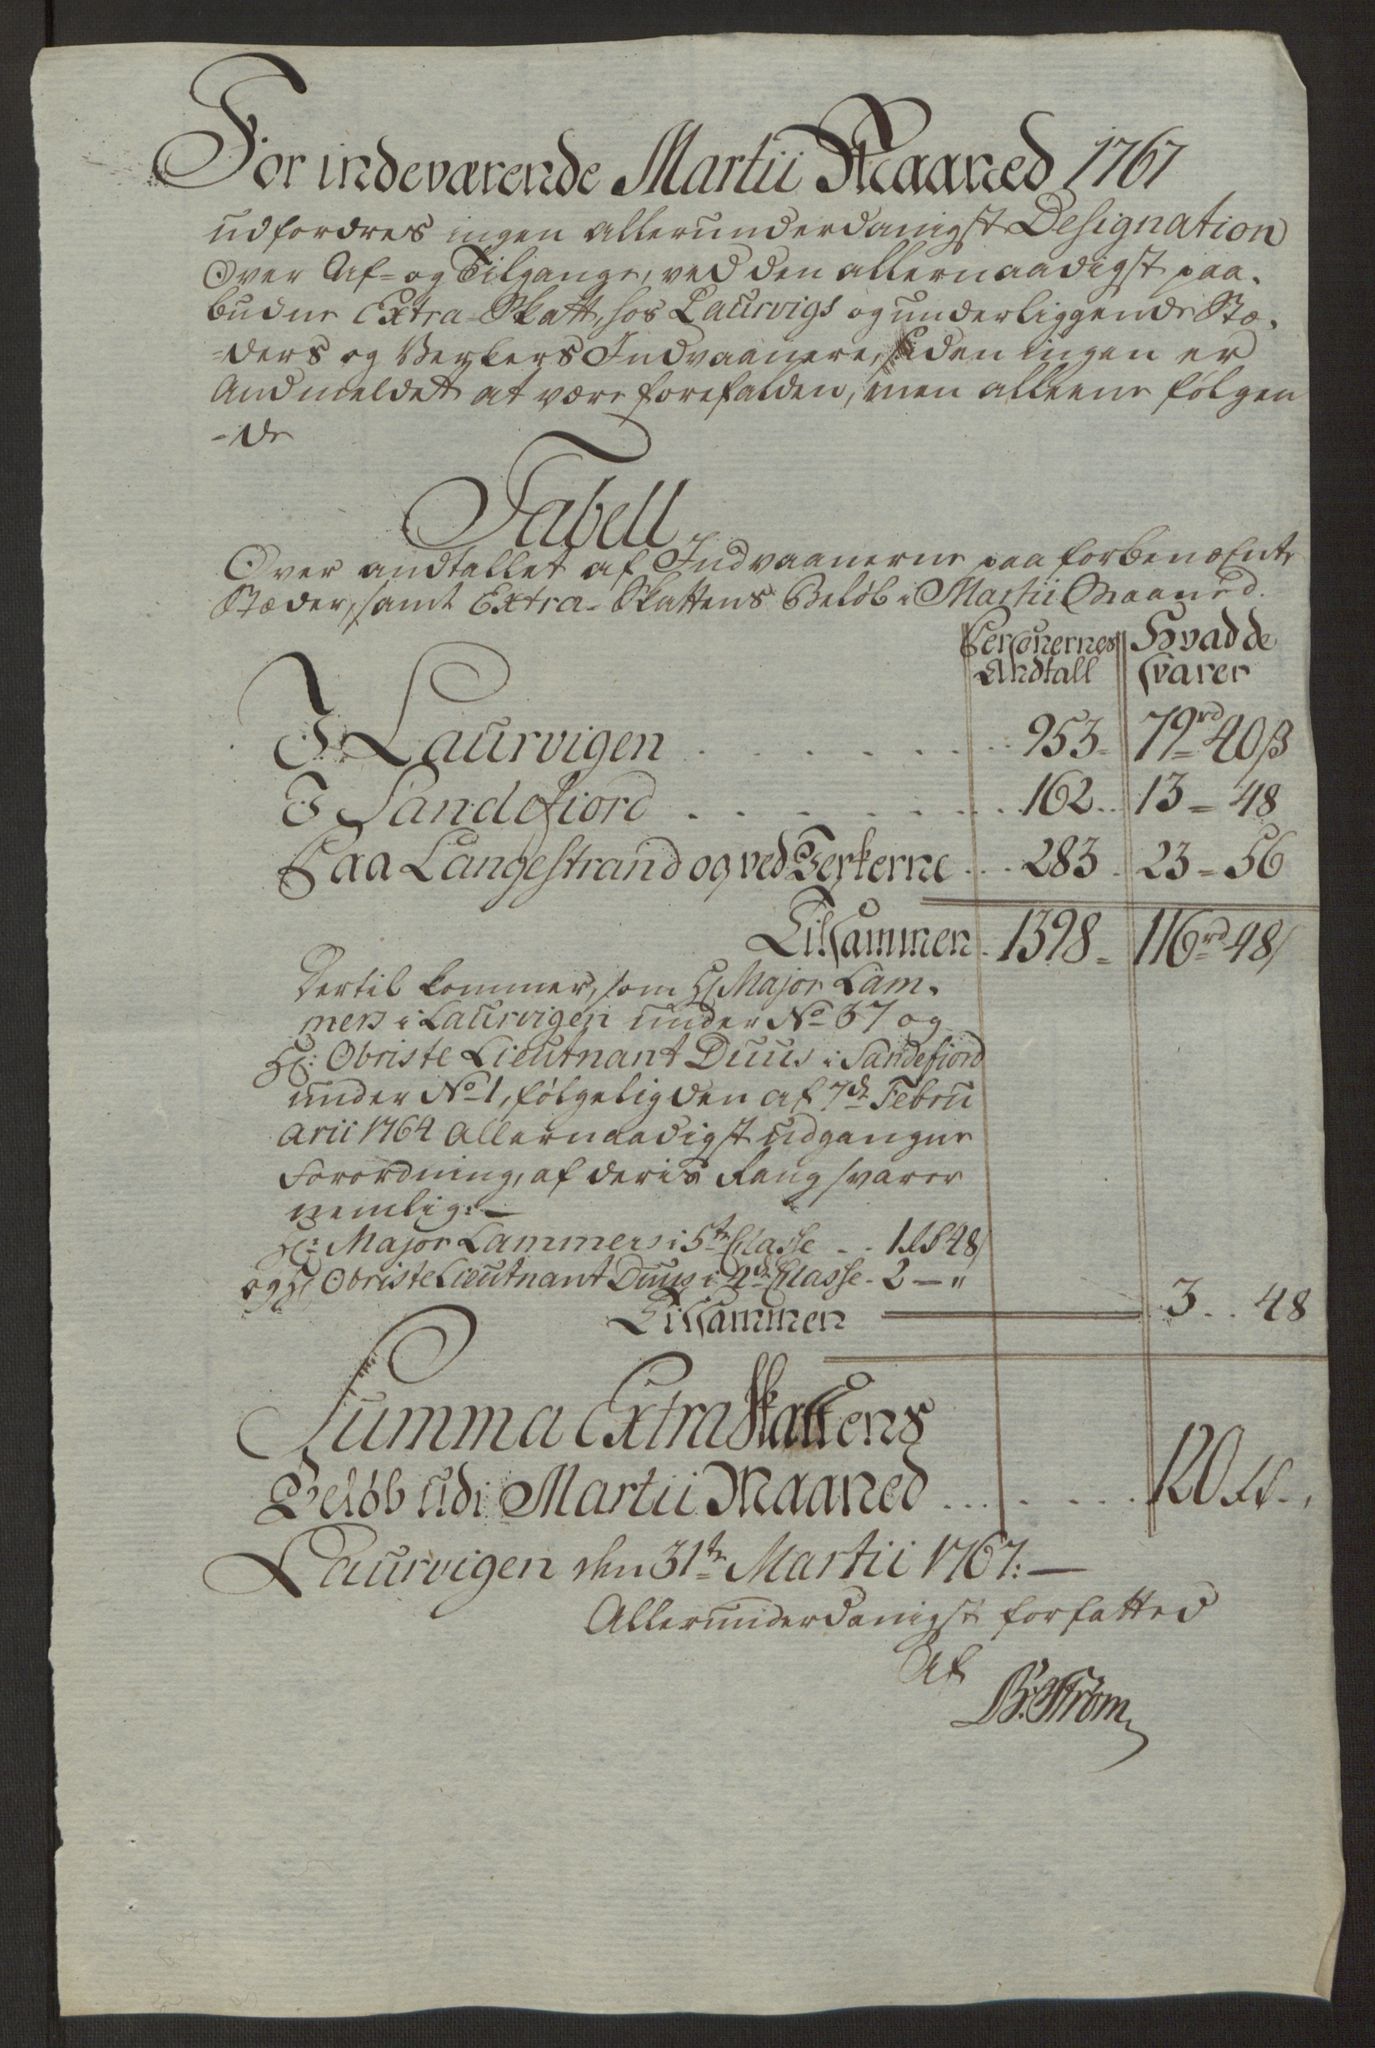 For indeværende Martii Maaned 1767
udfordres ingen allerunderdanigst Designation
Over Af- og Tilgange, ved den allernaadigst paa-
budne Extra-Skatt, hos Laurvigs og underliggende Stæ-
-ders og Verkers Indvaanere, siden ingen er
Andmeldet at være forefalden, men alleene følgen
-de
Tabell
Over andtallet af Indvaanerne paa forbenæente
Stæder, samt Extra-Skattens Beløb i Martii Maaned.
Personernes Andtall || Hvad de svarer
I Laurvigen . . . . . . . 953- 79rd 40ß
I Sandefiord . . . . . . . 162.. 13 - 48
Paa Langestrand og ved Verkerne . . . 283 . 23 - 56
Tilsammen . 1398 - 116rd 48ß
Dertil kommer, som Hr Major Lam-
mers i Laurvigen under No 37 og
Hr: Obriste Lieutnant Duus i Sandefiord
under No 1, følgelig den af 7de Febru
arii 1764 allernaadigst udgangne
Forordning, af deris Rang svarer
nemlig:-
Hr: Major Lammers i 5te Classe . . 1rd 48ß
og Hr Obriste Lieutnant Duus i 4de Classe - 2 - "
Tilsammen 3 . . 48
Summa Extra Skattens
Beløb udi Martii Maaned . . . . . . . 120 rd . ,
Laurvigen den 31te Martii 1767:-
Allerunderdanigst forfatted
Af
Br: Strøm